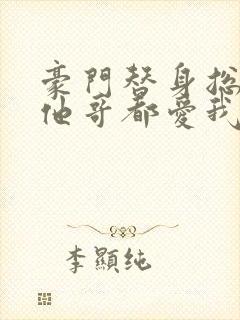 豪門替身總
他哥都愛我
李顯純